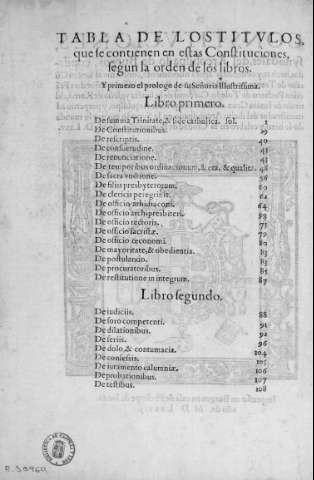 TABLA DE LOS TITVLOS,
que se contienen en estas Constituciones,
segun la orden de los libros.
Y primero el prologo de su Señoria Illustrissima.
Libro primero.
De summa Trinitate, & fide catholica. fol. 1
De Constitutionibus. 29
De rescriptis. 40
De consuetudine. 41
De renunciatione.
De temporibus ordinationum, & æta. & qualit.
De sacra vnctione.
De filiis presbyterorum.
De clericis peregrinis.
De officio archidiaconi. 64
De officio archipresbiteri.
De officio rectoris.
De officio sacristæ.
De officio œconomi. 80
De mayoritate, & obedientia.
De postulando. 83
De procuratoribus. 85
De restitutione in integrum. 87
Libro segundo.
De iudiciis. 88
De foro competenti. 91
De dilationibus. 92
De feriis. 96
De dolo, & contumacia. 104
De confessis. 105
De iuramento calumniæ. 106
De probationibus. 107
De testibus. 108